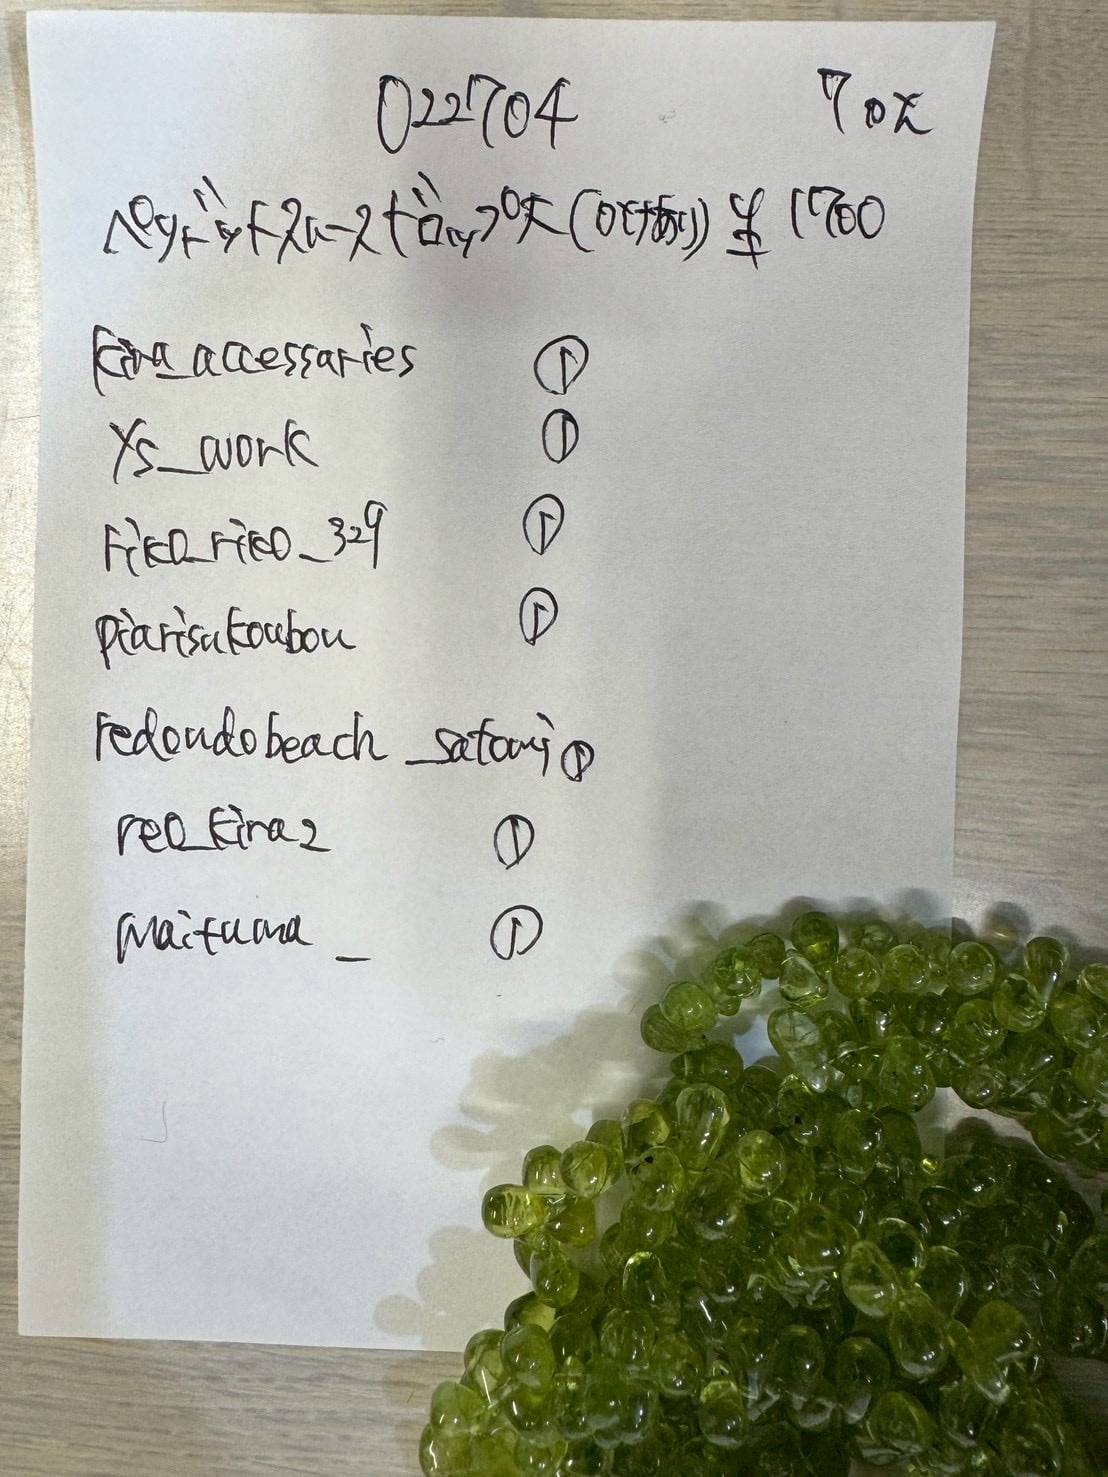 022704 7点
ペリドットスムースドロップ大(穴有り) 半1700
kira_accessaries ①
ys_work ①
riko_riko_329 ①
piarisukoubou ①
redondobeach_satomi ①
reo_kira2 ①
maituma_ ①